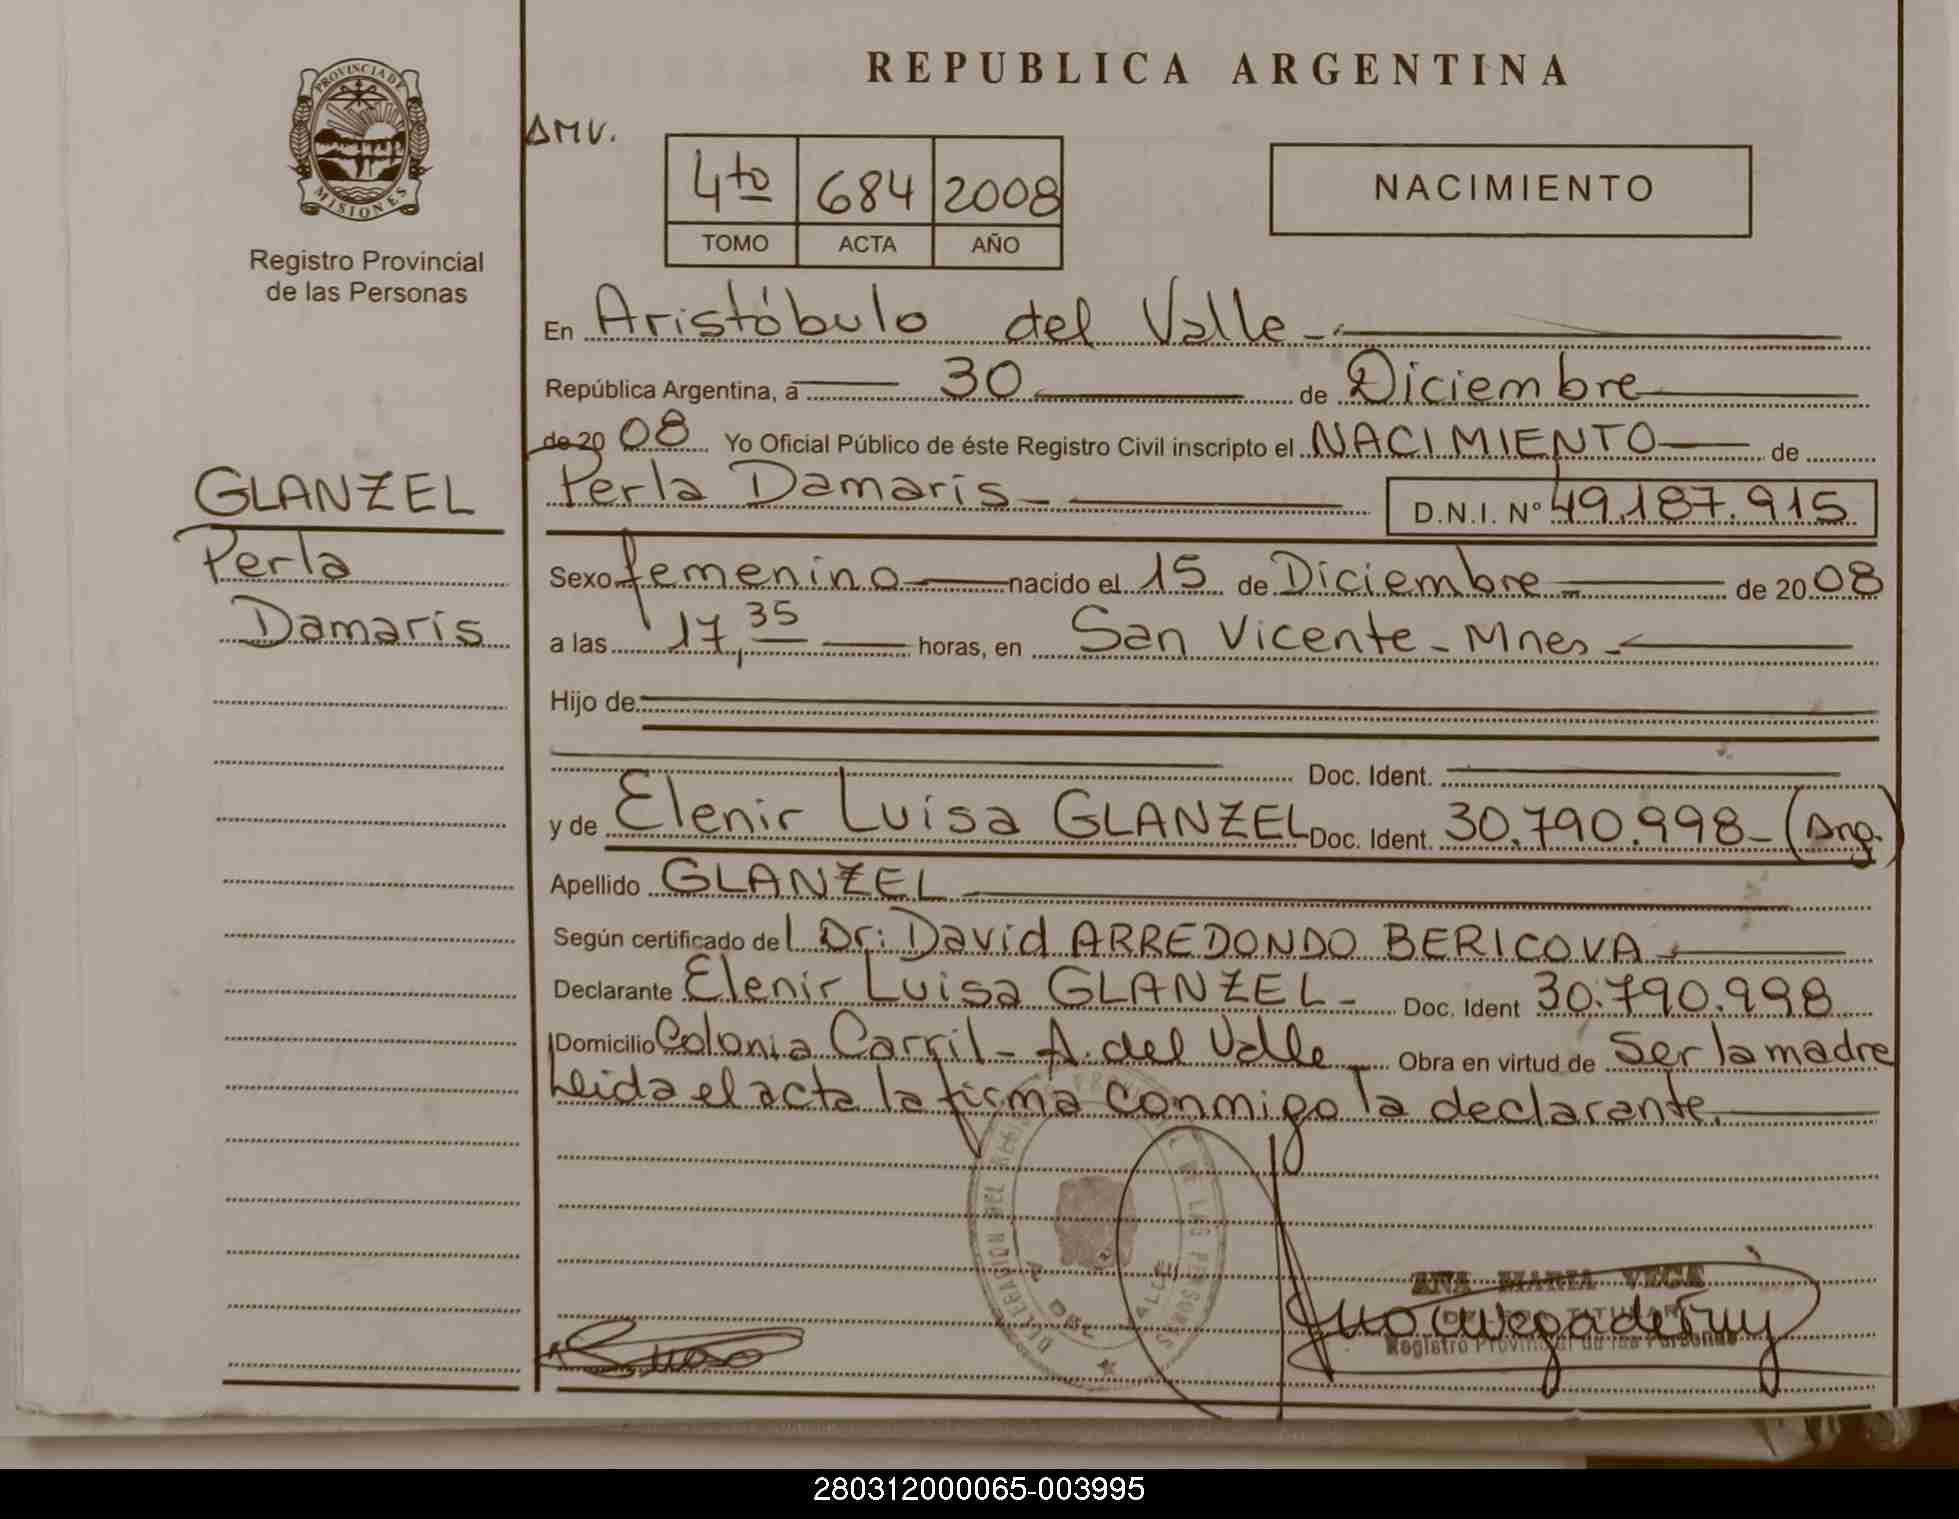 PROVINCIA DE
MISIONES
Registro Provincial
de las Personas
GLANZEL
Perla
Damaris
REPUBLICA ARGENTINA
AMV.
4to 684 2008
TOMO ACTA AÑO
NACIMIENTO
En Aristóbulo del Valle
República Argentina, a 30 de Diciembre
de 20 08 Yo Oficial Público de éste Registro Civil inscripto el NACIMIENTO de
Perla Damaris D.N.I. N° 49.187.915
Sexo femenino nacido el 15 de Diciembre de 20 08
a las 17,35 horas, en San Vicente - Mnes -
Hijo de
Doc. Ident.
y de Elenir Luisa GLANZEL Doc. Ident. 30.790.998 - (Arg.)
Apellido GLANZEL
Según certificado del Dr: David ARREDONDO BERICOVA
Declarante Elenir Luisa GLANZEL - Doc. Ident 30.790.998
Domicilio Colonia Carril - A. del Valle Obra en virtud de Ser la madre
Leida el acta la firma conmigo la declarante.
DELEGACION DEL REGISTRO PROVINCIAL DE LAS PERSONAS
A. DEL VALLE
ANA MARIA VEGA
TITULAR
Registro Provincial de las Personas
280312000065-003995